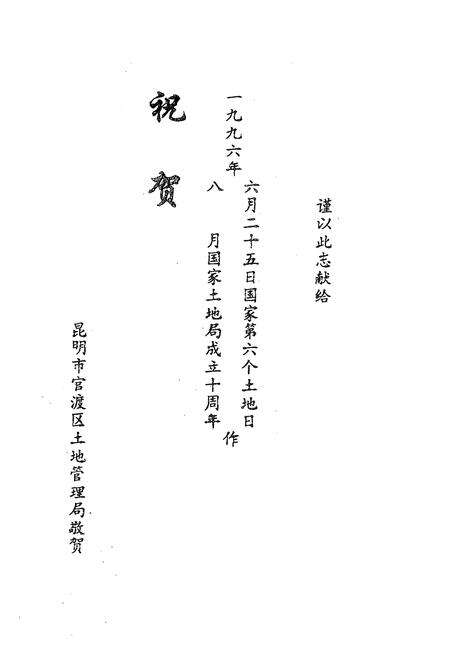 谨以此志献给
一九九六年
六月二十五日国家第六个土地日
八月国家土地局成立十周年
作
祝贺
昆明市官渡区土地管理局敬贺